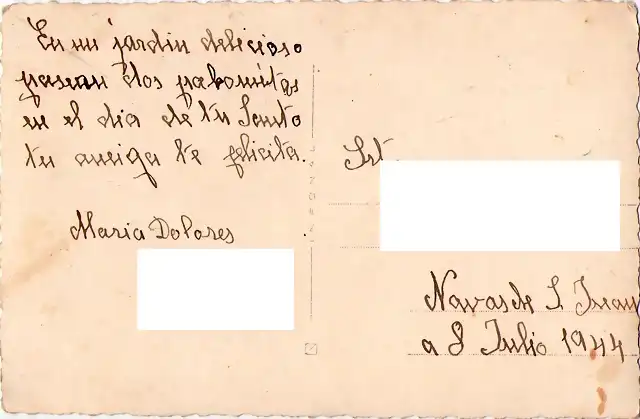 En mi jardin delicioso
pasean dos palomitas
en el dia de tu Santo
tu amiga te felicita.
Maria Dolores
Srt
Navas de S. Juan
a 8 Julio 1944